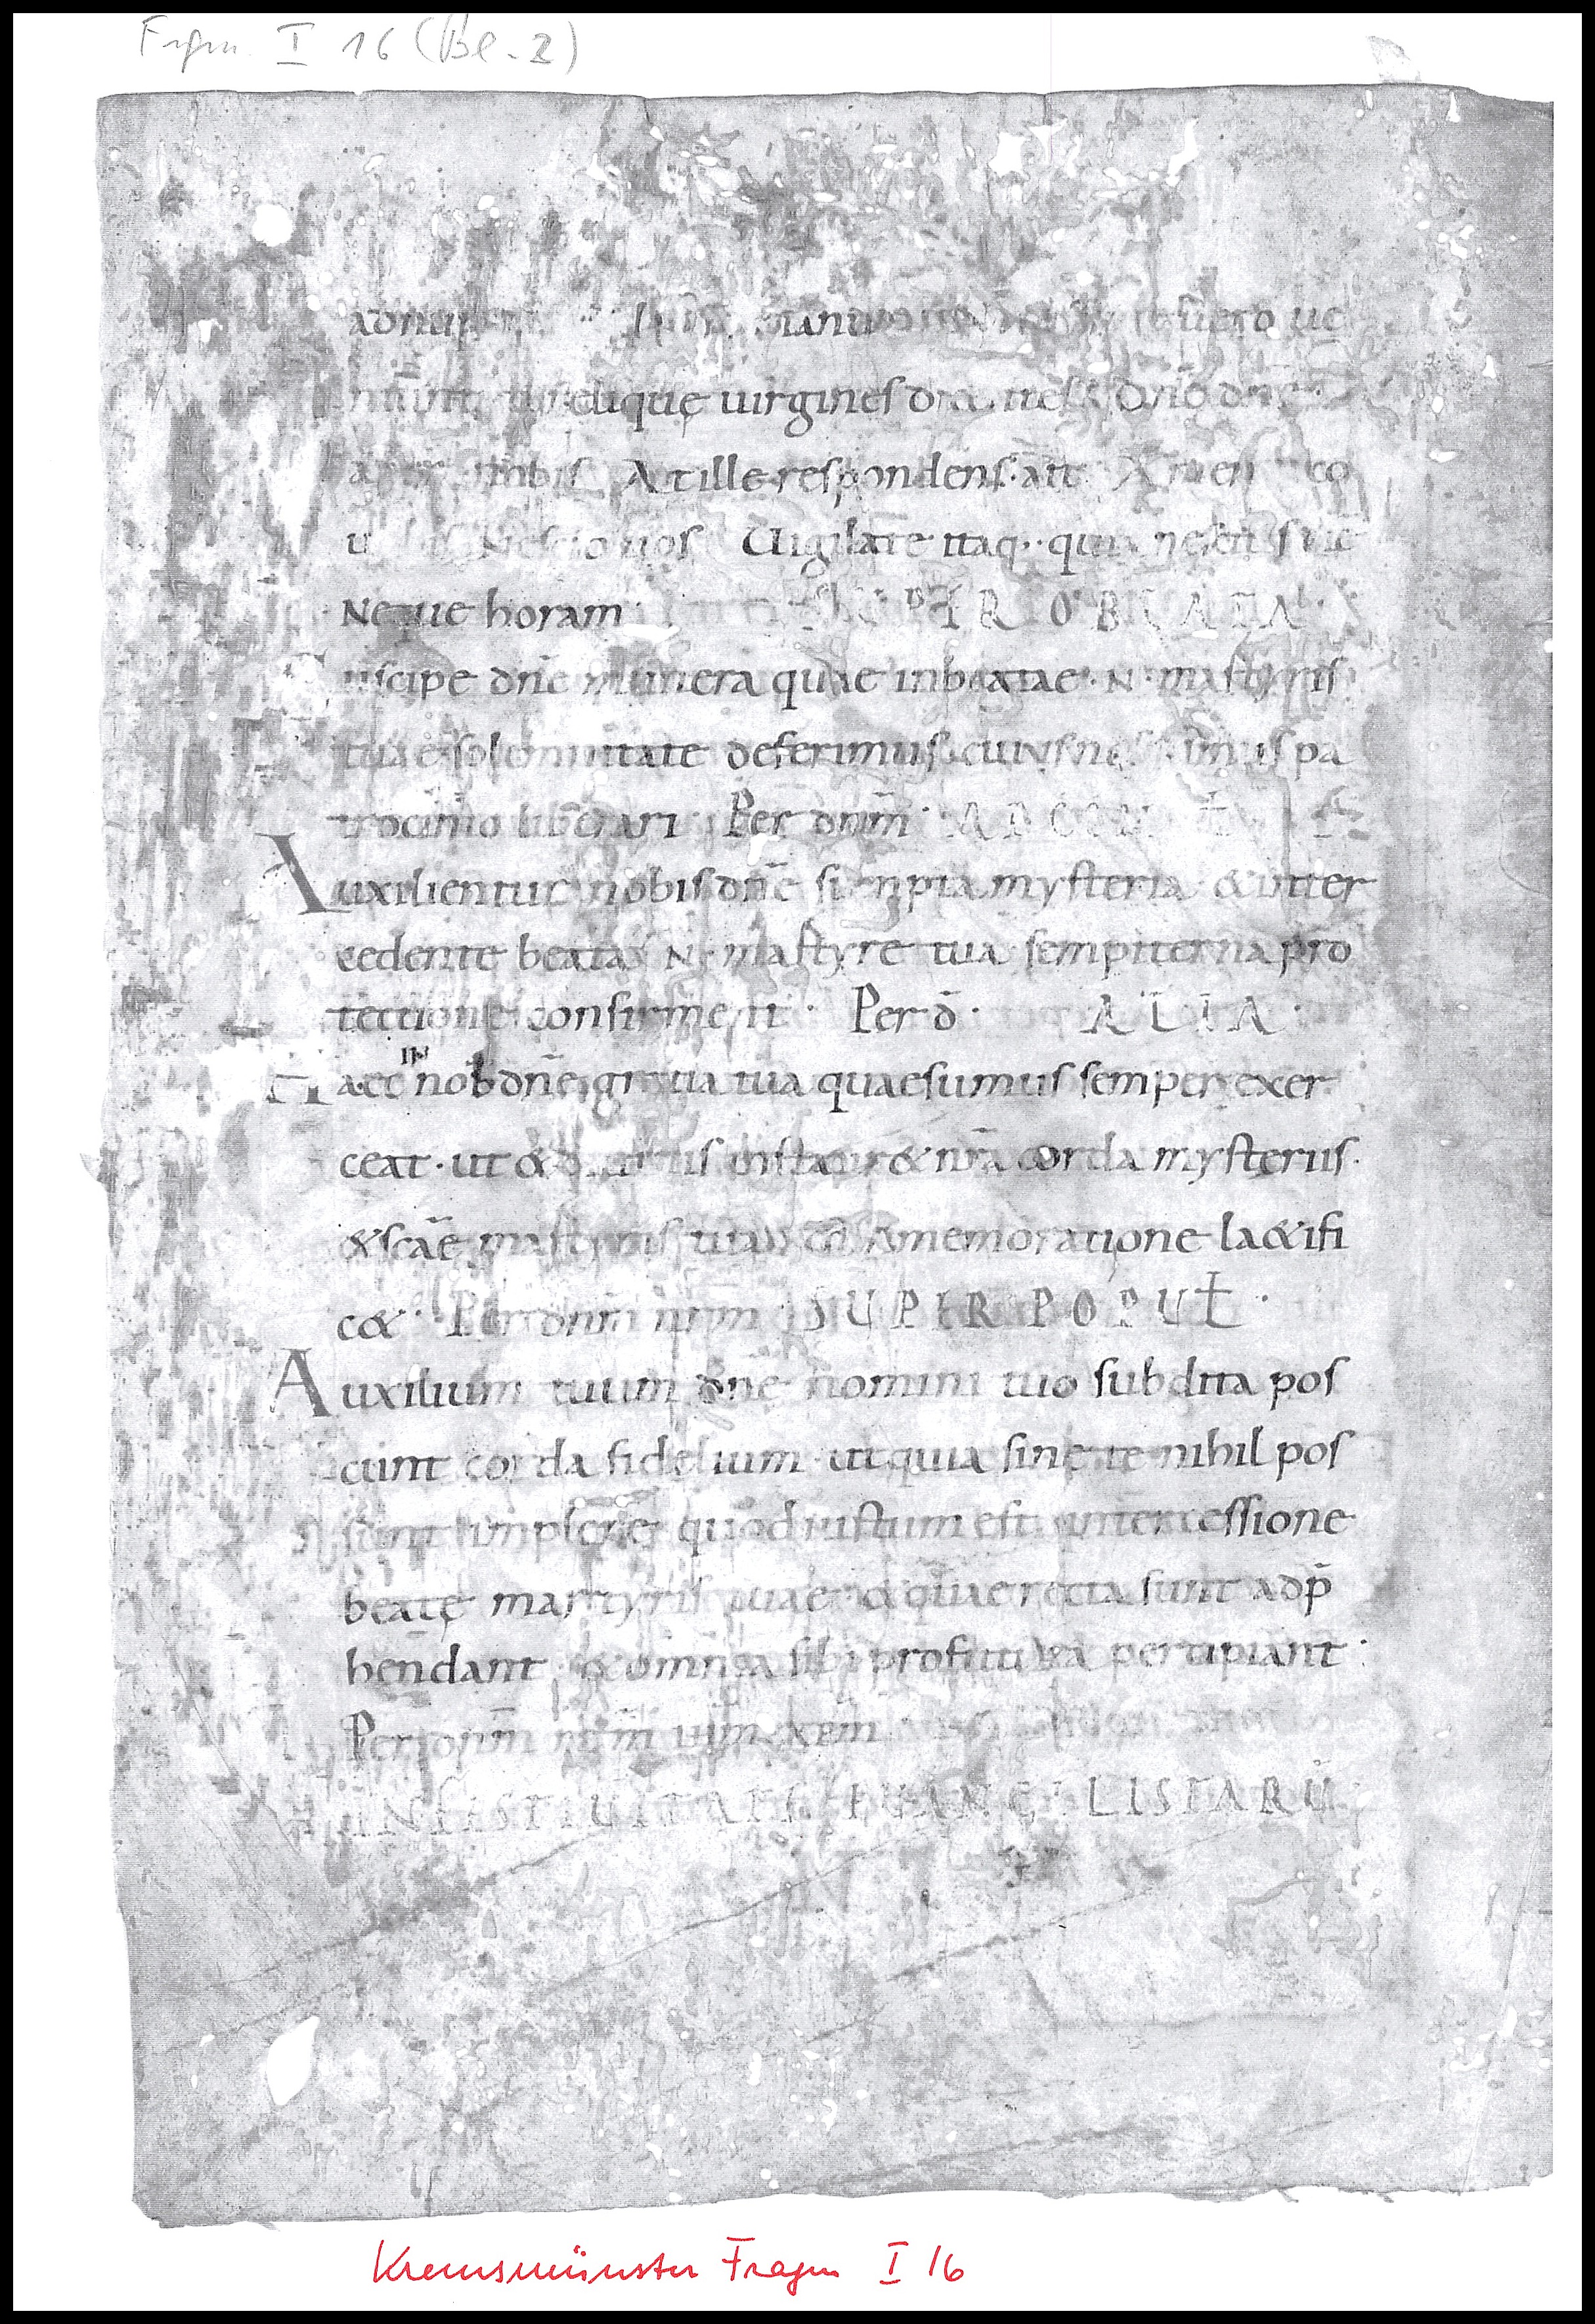 Fragm. I 16 (Bl. 2)
uero ue
reliquę uirgines dn̄e dn̄e
nobis At ille respondens ait Amen co
Nescio uos Uigilate itaq· quia nescitis
Neque horam· SUPER OBLATA
uscipe dn̄e munera quae in beatae· N· martyris
tuae solemnitate deferimus· cuius nos pa
trocinio liberari· Per dnm̄·
Auxilientur nobis dn̄e mysteria· & inter
cedente beata N· martyre tua sempiterna pro
tectione confirment· Per d̄· ALIA·
Haec in nob dn̄e gratia tua quaesumus semper exer
ceat· ut & nr̄a corda mysteriis·
& sc̄ae martyris tuae com̄memoratione laetifi
c&· Per dnm̄ nrm̄ SUPER POPUL̵·
Auxilium tuum dn̄e nomini tuo subdita pos
cunt corda fidelium· ut quia sine te nihil pos
sunt implere quod iustum est· intercessione
beatę martyris tuae· & quae recta sunt adp̄
hendant· & omnia sibi profutura percipiant·
Per dnm̄ nrm̄
IN FESTIUITATE EUANGELISTARŪ·
Kremsmünster Fragm I 16